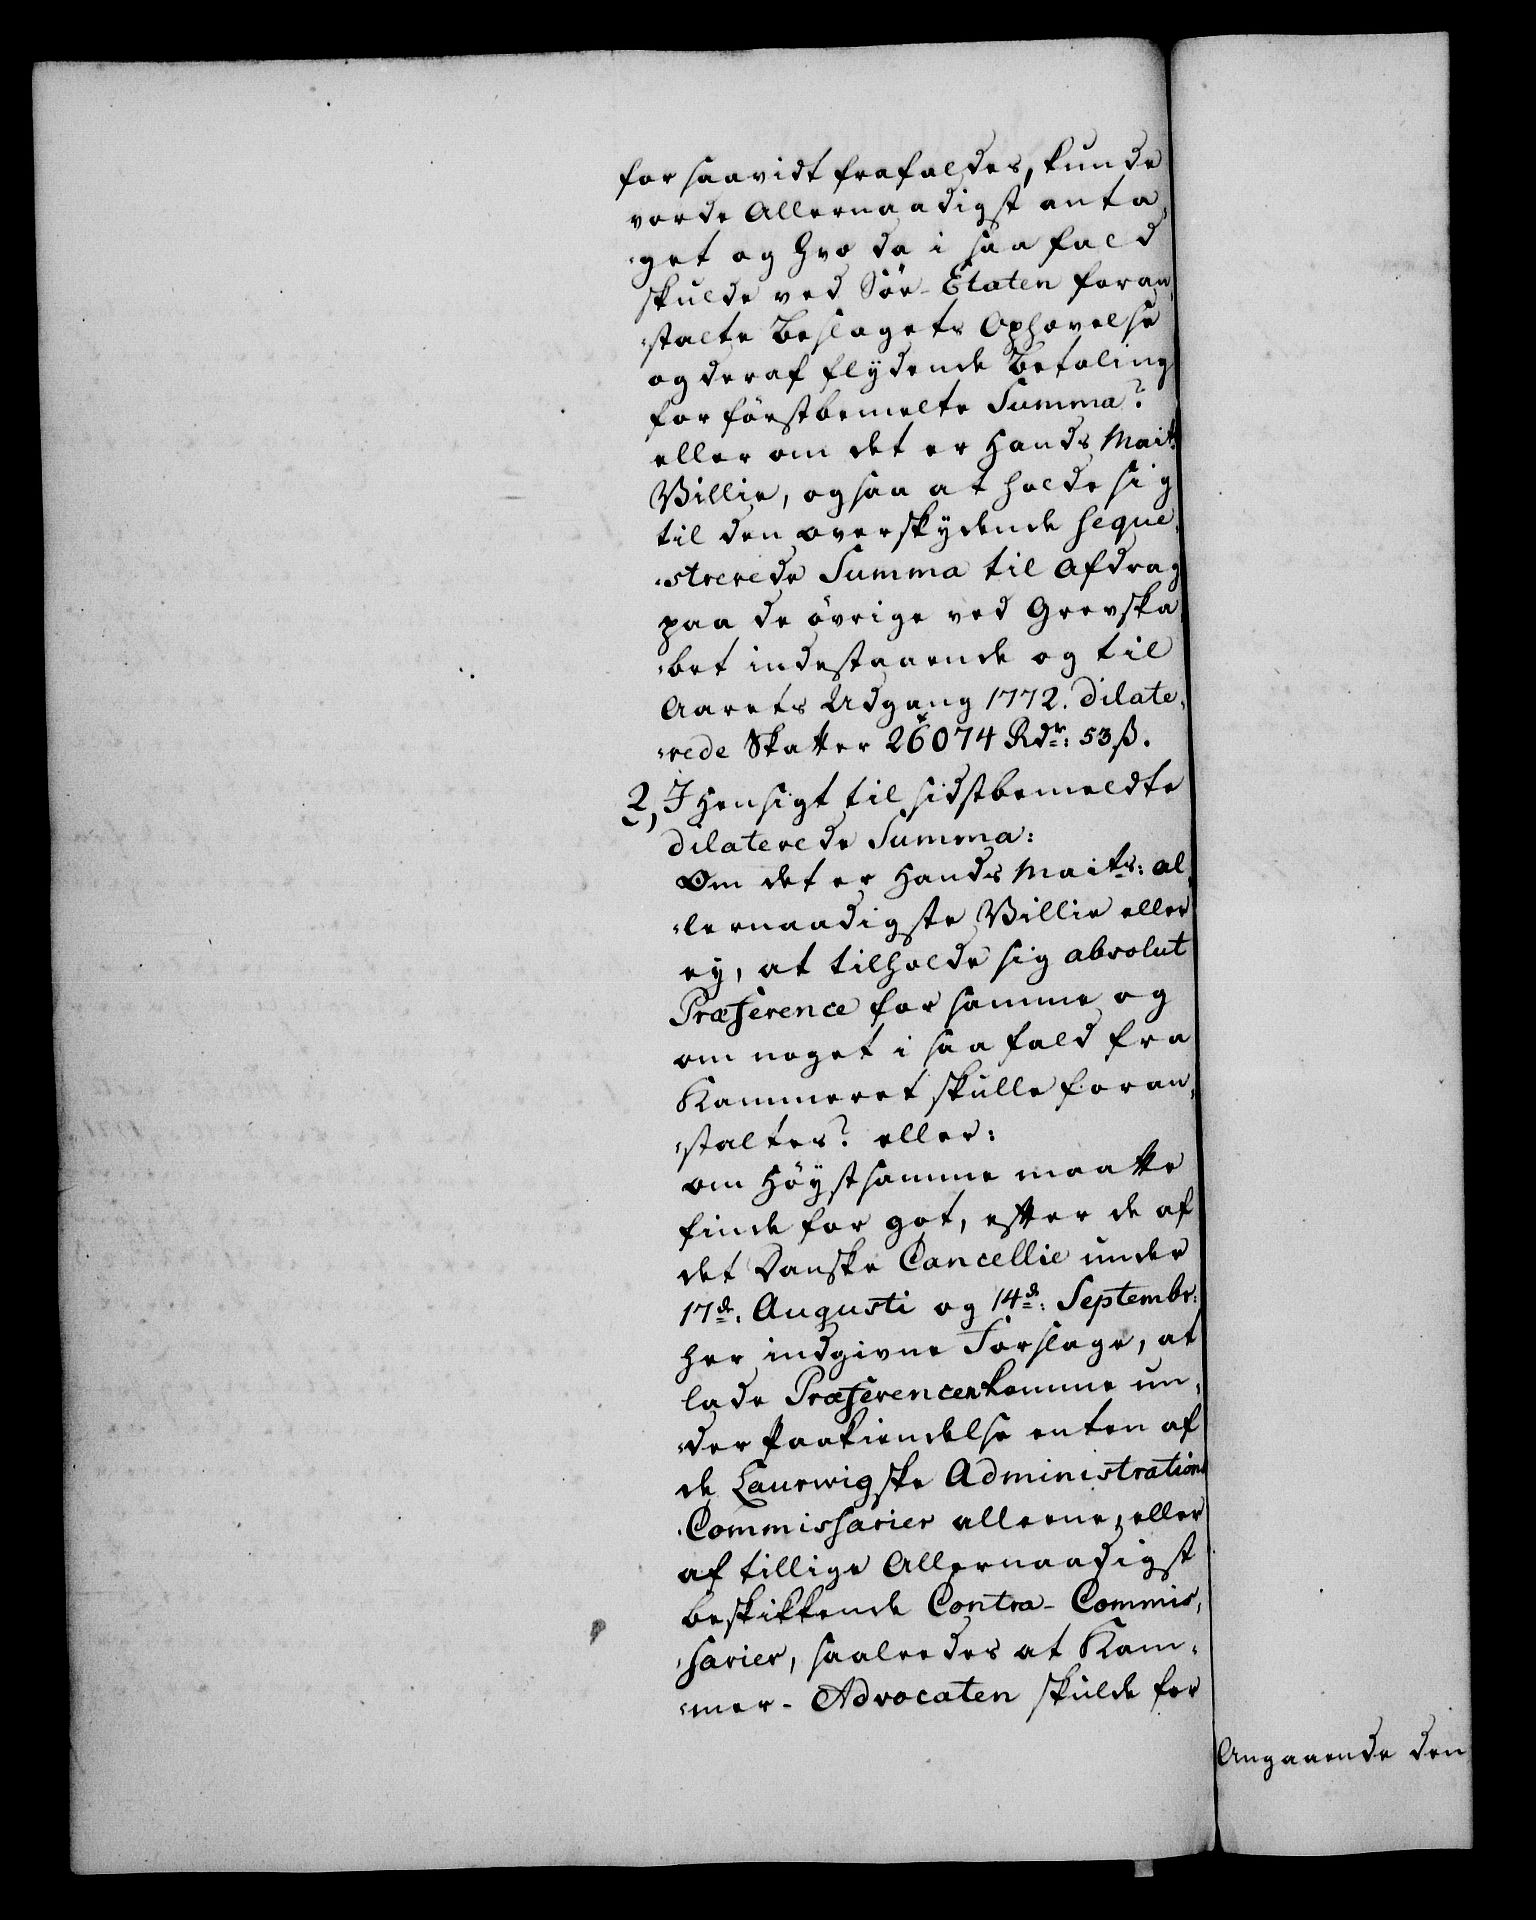 forsaavidt frafaldes, kunde
vorde Allernaadigst anta„
„get og hvo da i saa fald
skulde ved Söe-Etaten foran„
„stalte Beslagets Ophævelse
og deraf flydende Betaling
for förstbemelte Summa?
eller om det er Hands Maits:
Villie, ogsaa at holde sig
til den overskydende seque„
„strerede Summa til Afdrag
paa de övrige ved Grevska„
„bet indestaaende og til
Aarets Udgang 1772. dilate„
„rede Skatter 26074 Rdr: 53 ß.
2, I Hensigt til sidstbemeldte
dilaterede Summa:
Om det er Hands Maits: al„
„lernaadigste Villie eller
ey, at tilholde sig absolut
Præference for samme og
om noget i saa fald fra
Kammeret skulle foran„
„staltes? eller:
om Höystsamme maatte
finde for got, efter de af
det Danske Cancellie under
17de: Augusti og 14de: Septembr:
her indgivne Forslage, at
lade Præferencen komme un„
„der Paakiendelse enten af
de Laurwigske Administrations
Commissarier alleene, eller
af tillige Allernaadigst
beskikkende Contra-Commis„
„sarier, saaleedes at Kam„
„mer-Advocaten skulde for
Angaaende den